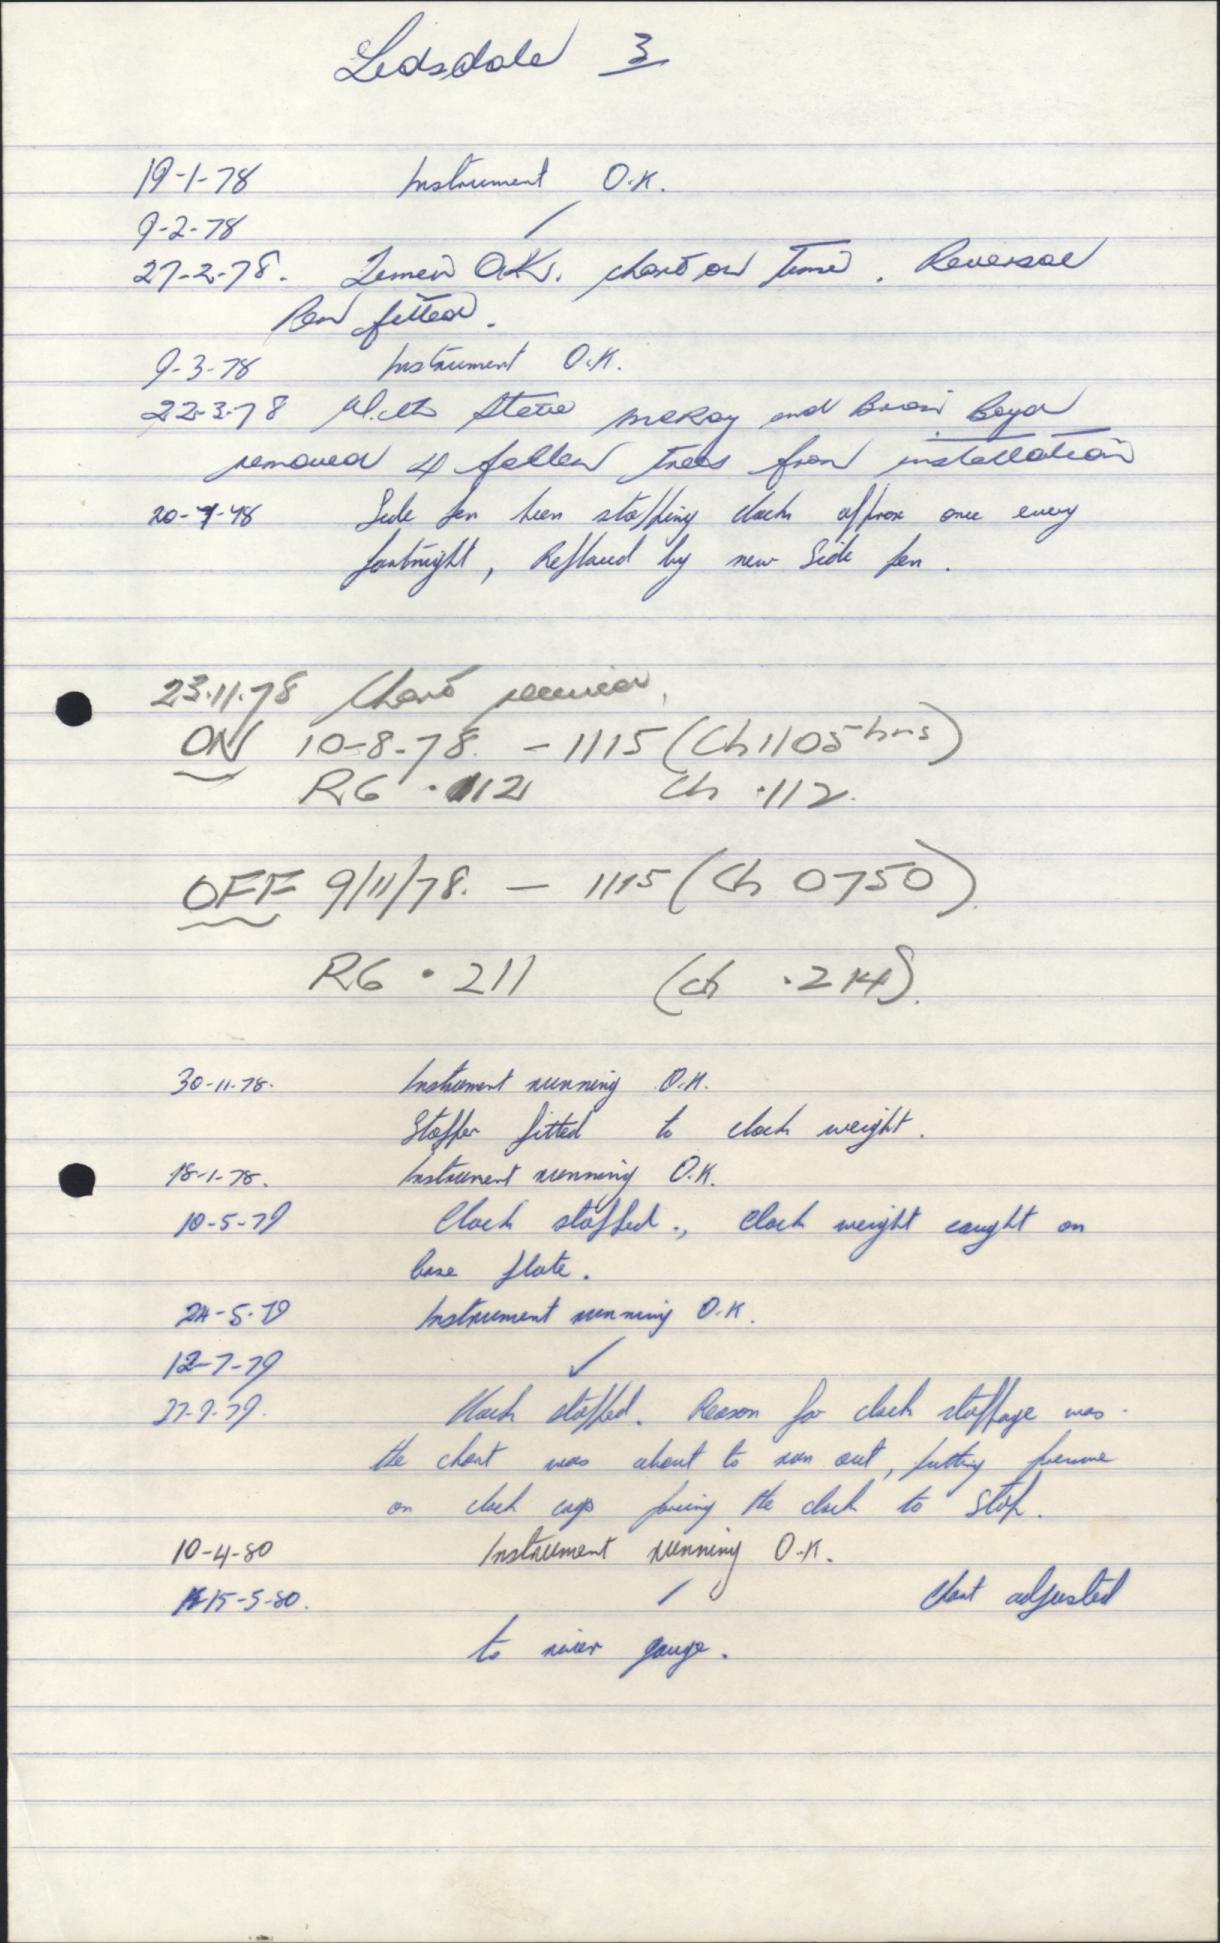 Lidsdale 3
19-1-78 Instrument O.K.
9-2-78 /
27-2-78. Timer O.K. chart on time. Reversal
Pen fitted.
9-3-78 Instrument O.K.
22-3-78 With Steve McKay and Brian Boyd
removed 4 fallen trees from installation
20-7-78 Side pen been stopping clock approx once every
fortnight, Replaced by new Side pen.
23.11.78 Chart received,
ON 10-8-78. - 1115 (Ch 1105 hrs)
RG .112 Ch .112.
OFF 9/11/78. - 1115 (Ch 0750).
RG .211 (ch .214).
30-11-78. Instrument running O.K.
Stopper fitted to clock weight.
18-1-78. Instrument running O.K.
10-5-79 Clock stopped., Clock weight caught on
base plate.
24-5-79 Instrument running O.K.
12-7-79 ✓
27-9-79. Clock stopped. Reason for clock stoppage was.
the chart was about to run out, putting pressure
on clock cogs forcing the clock to stop.
10-4-80 Instrument running O.K.
15-5-80. / Chart adjusted
to river gauge.